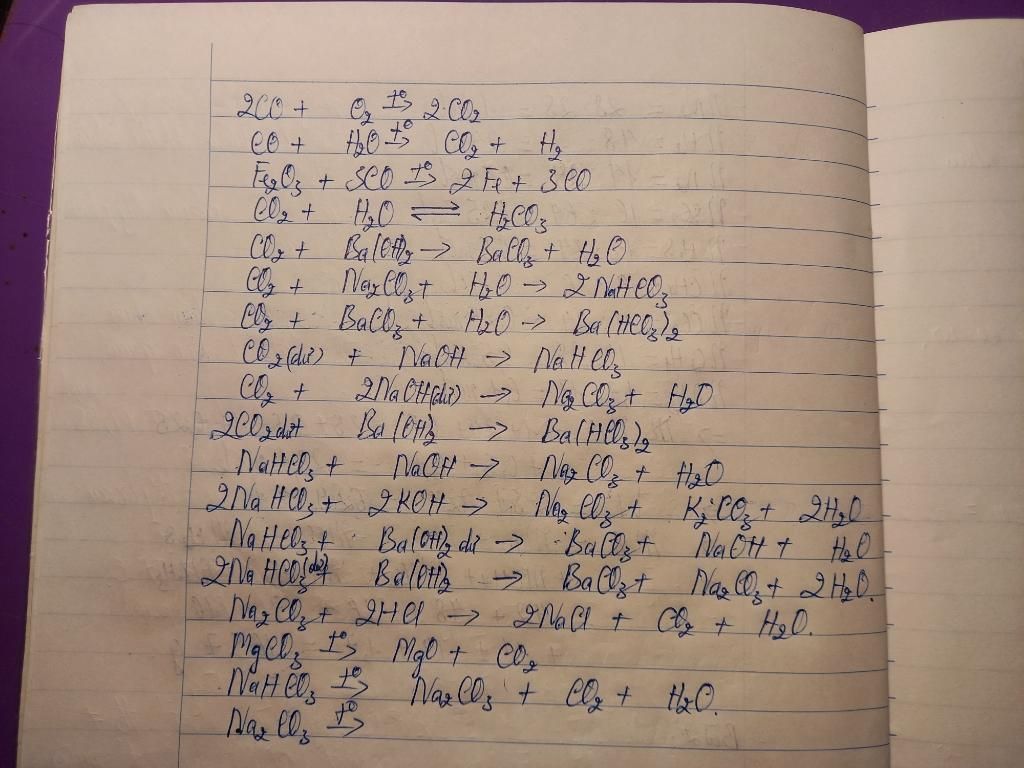 2CO + O₂ t°→ 2CO₂
CO + H₂O t°→ CO₂ + H₂
Fe₂O₃ + 3CO t°→ 2Fe + 3CO
CO₂ + H₂O ⇌ H₂CO₃
CO₂ + Ba(OH)₂ → BaCO₃ + H₂O
CO₂ + Na₂CO₃ + H₂O → 2NaHCO₃
CO₂ + BaCO₃ + H₂O → Ba(HCO₃)₂
CO₂(dư) + NaOH → NaHCO₃
CO₂ + 2NaOH(dư) → Na₂CO₃ + H₂O
2CO₂ dư + Ba(OH)₂ → Ba(HCO₃)₂
NaHCO₃ + NaOH → Na₂CO₃ + H₂O
2NaHCO₃ + 2KOH → Na₂CO₃ + K₂CO₃ + 2H₂O
NaHCO₃ + Ba(OH)₂ dư → BaCO₃ + NaOH + H₂O
2NaHCO₃(dư) + Ba(OH)₂ → BaCO₃ + Na₂CO₃ + 2H₂O.
Na₂CO₃ + 2HCl → 2NaCl + CO₂ + H₂O.
MgCO₃ t°→ MgO + CO₂
NaHCO₃ t°→ Na₂CO₃ + CO₂ + H₂O.
Na₂CO₃ t°→